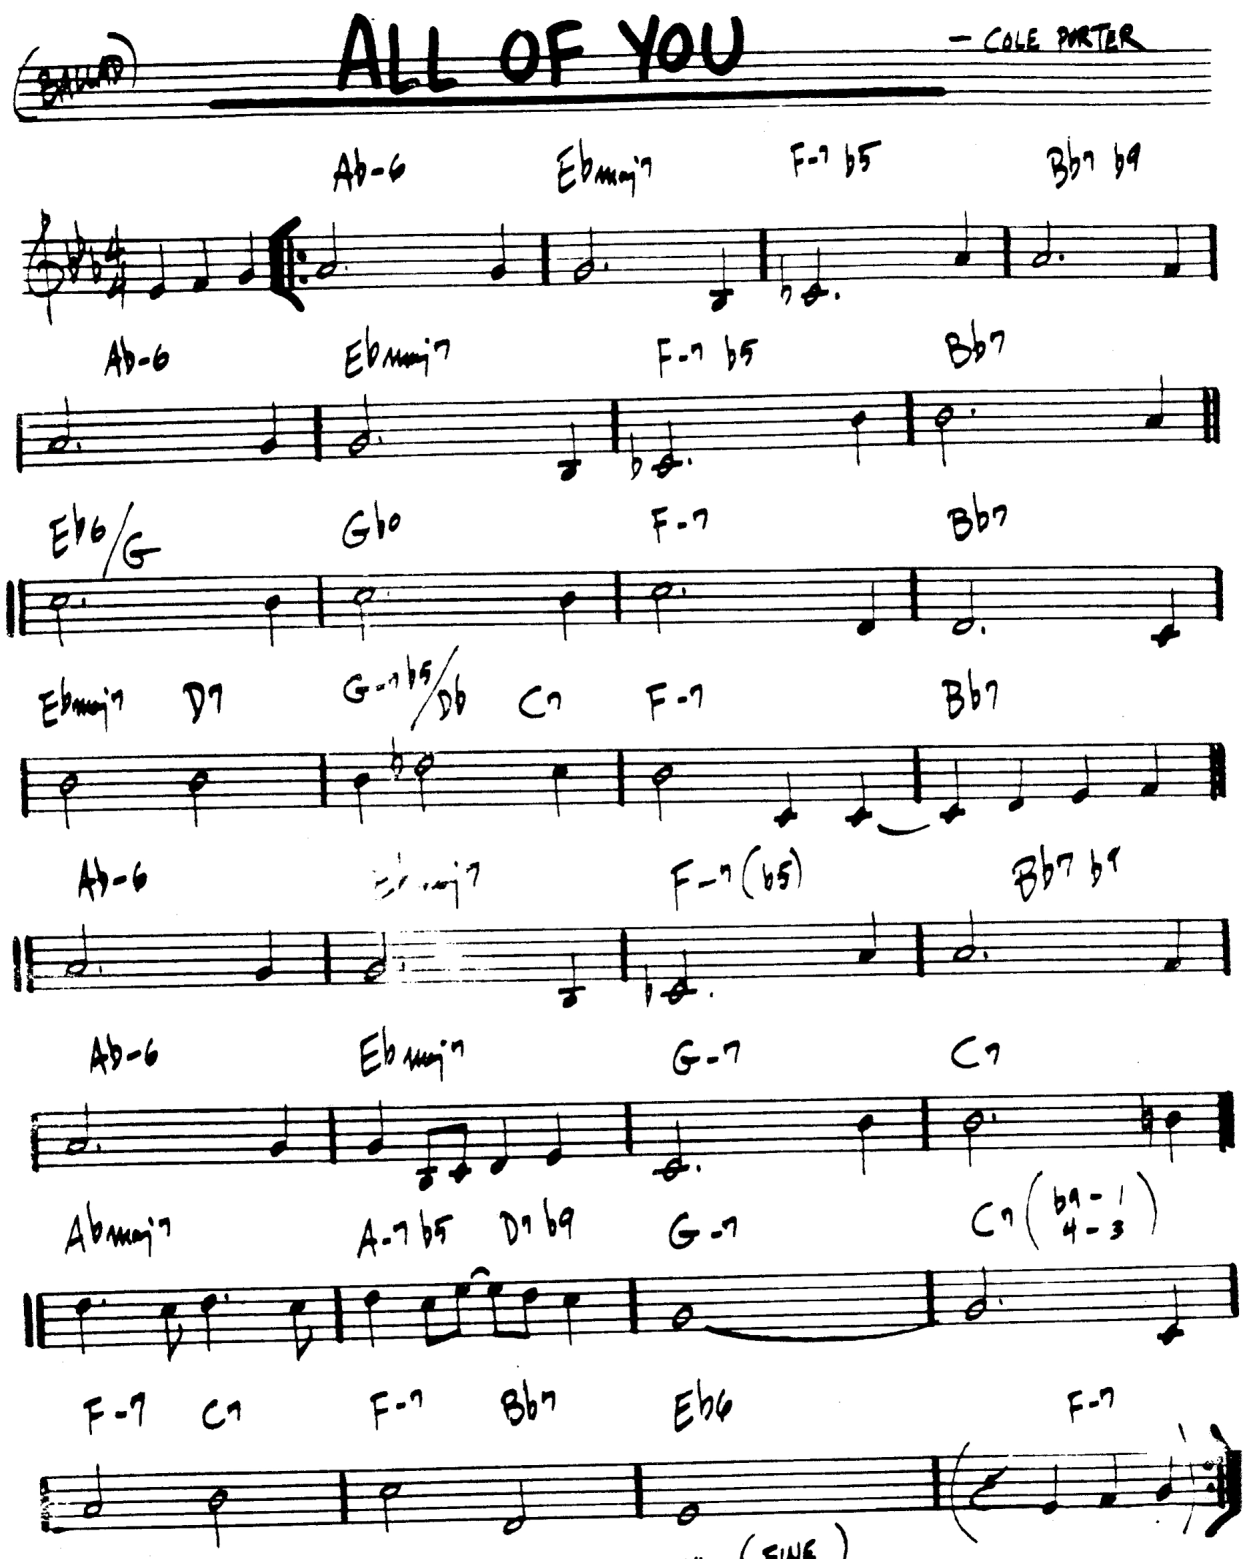 (BALLAD) ALL OF YOU - COLE PORTER
Ab-6 Ebmaj7 F-7 b5 Bb7 b9
4 4
Ab-6 Ebmaj7 F-7 b5 Bb7
Eb6/G Gbo F-7 Bb7
Ebmaj7 D7 G-7b5/Db C7 F-7 Bb7
Ab-6 Ebmaj7 F-7(b5) Bb7 b9
Ab-6 Ebmaj7 G-7 C7
Abmaj7 A-7 b5 D7 b9 G-7 C7(b9-1 4-3)
F-7 C7 F-7 Bb7 Eb6 F-7
(FINE)